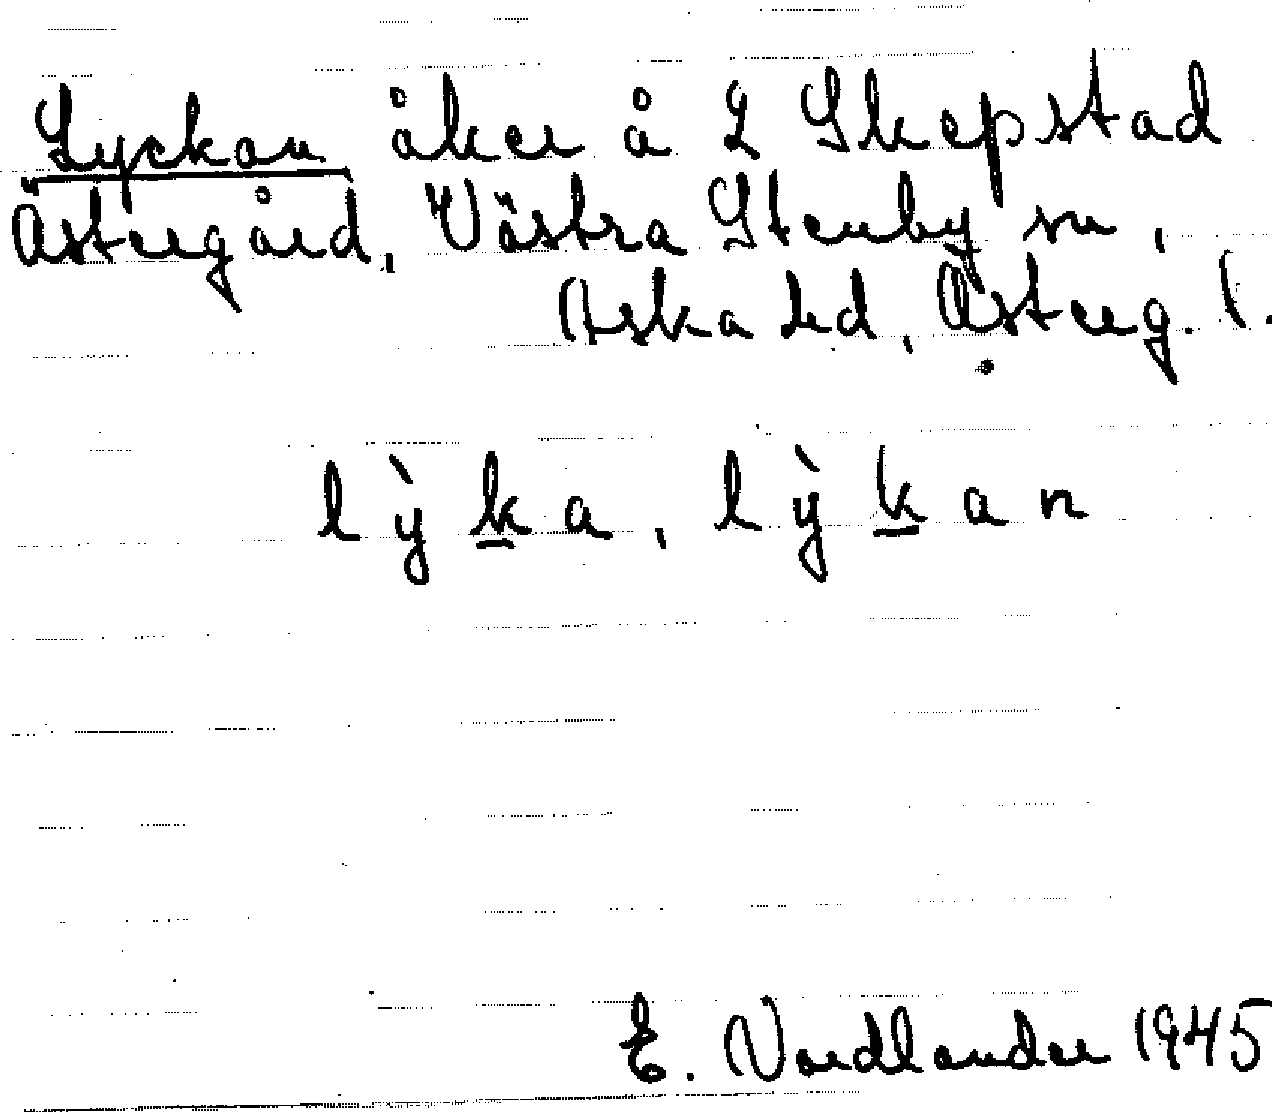 Lyckan åker å 2 Skepstad
Östergård, Västra Stenby sn,
Aska hd, Österg. l.
lỳka, lỳkan
E. Nordlander 1945